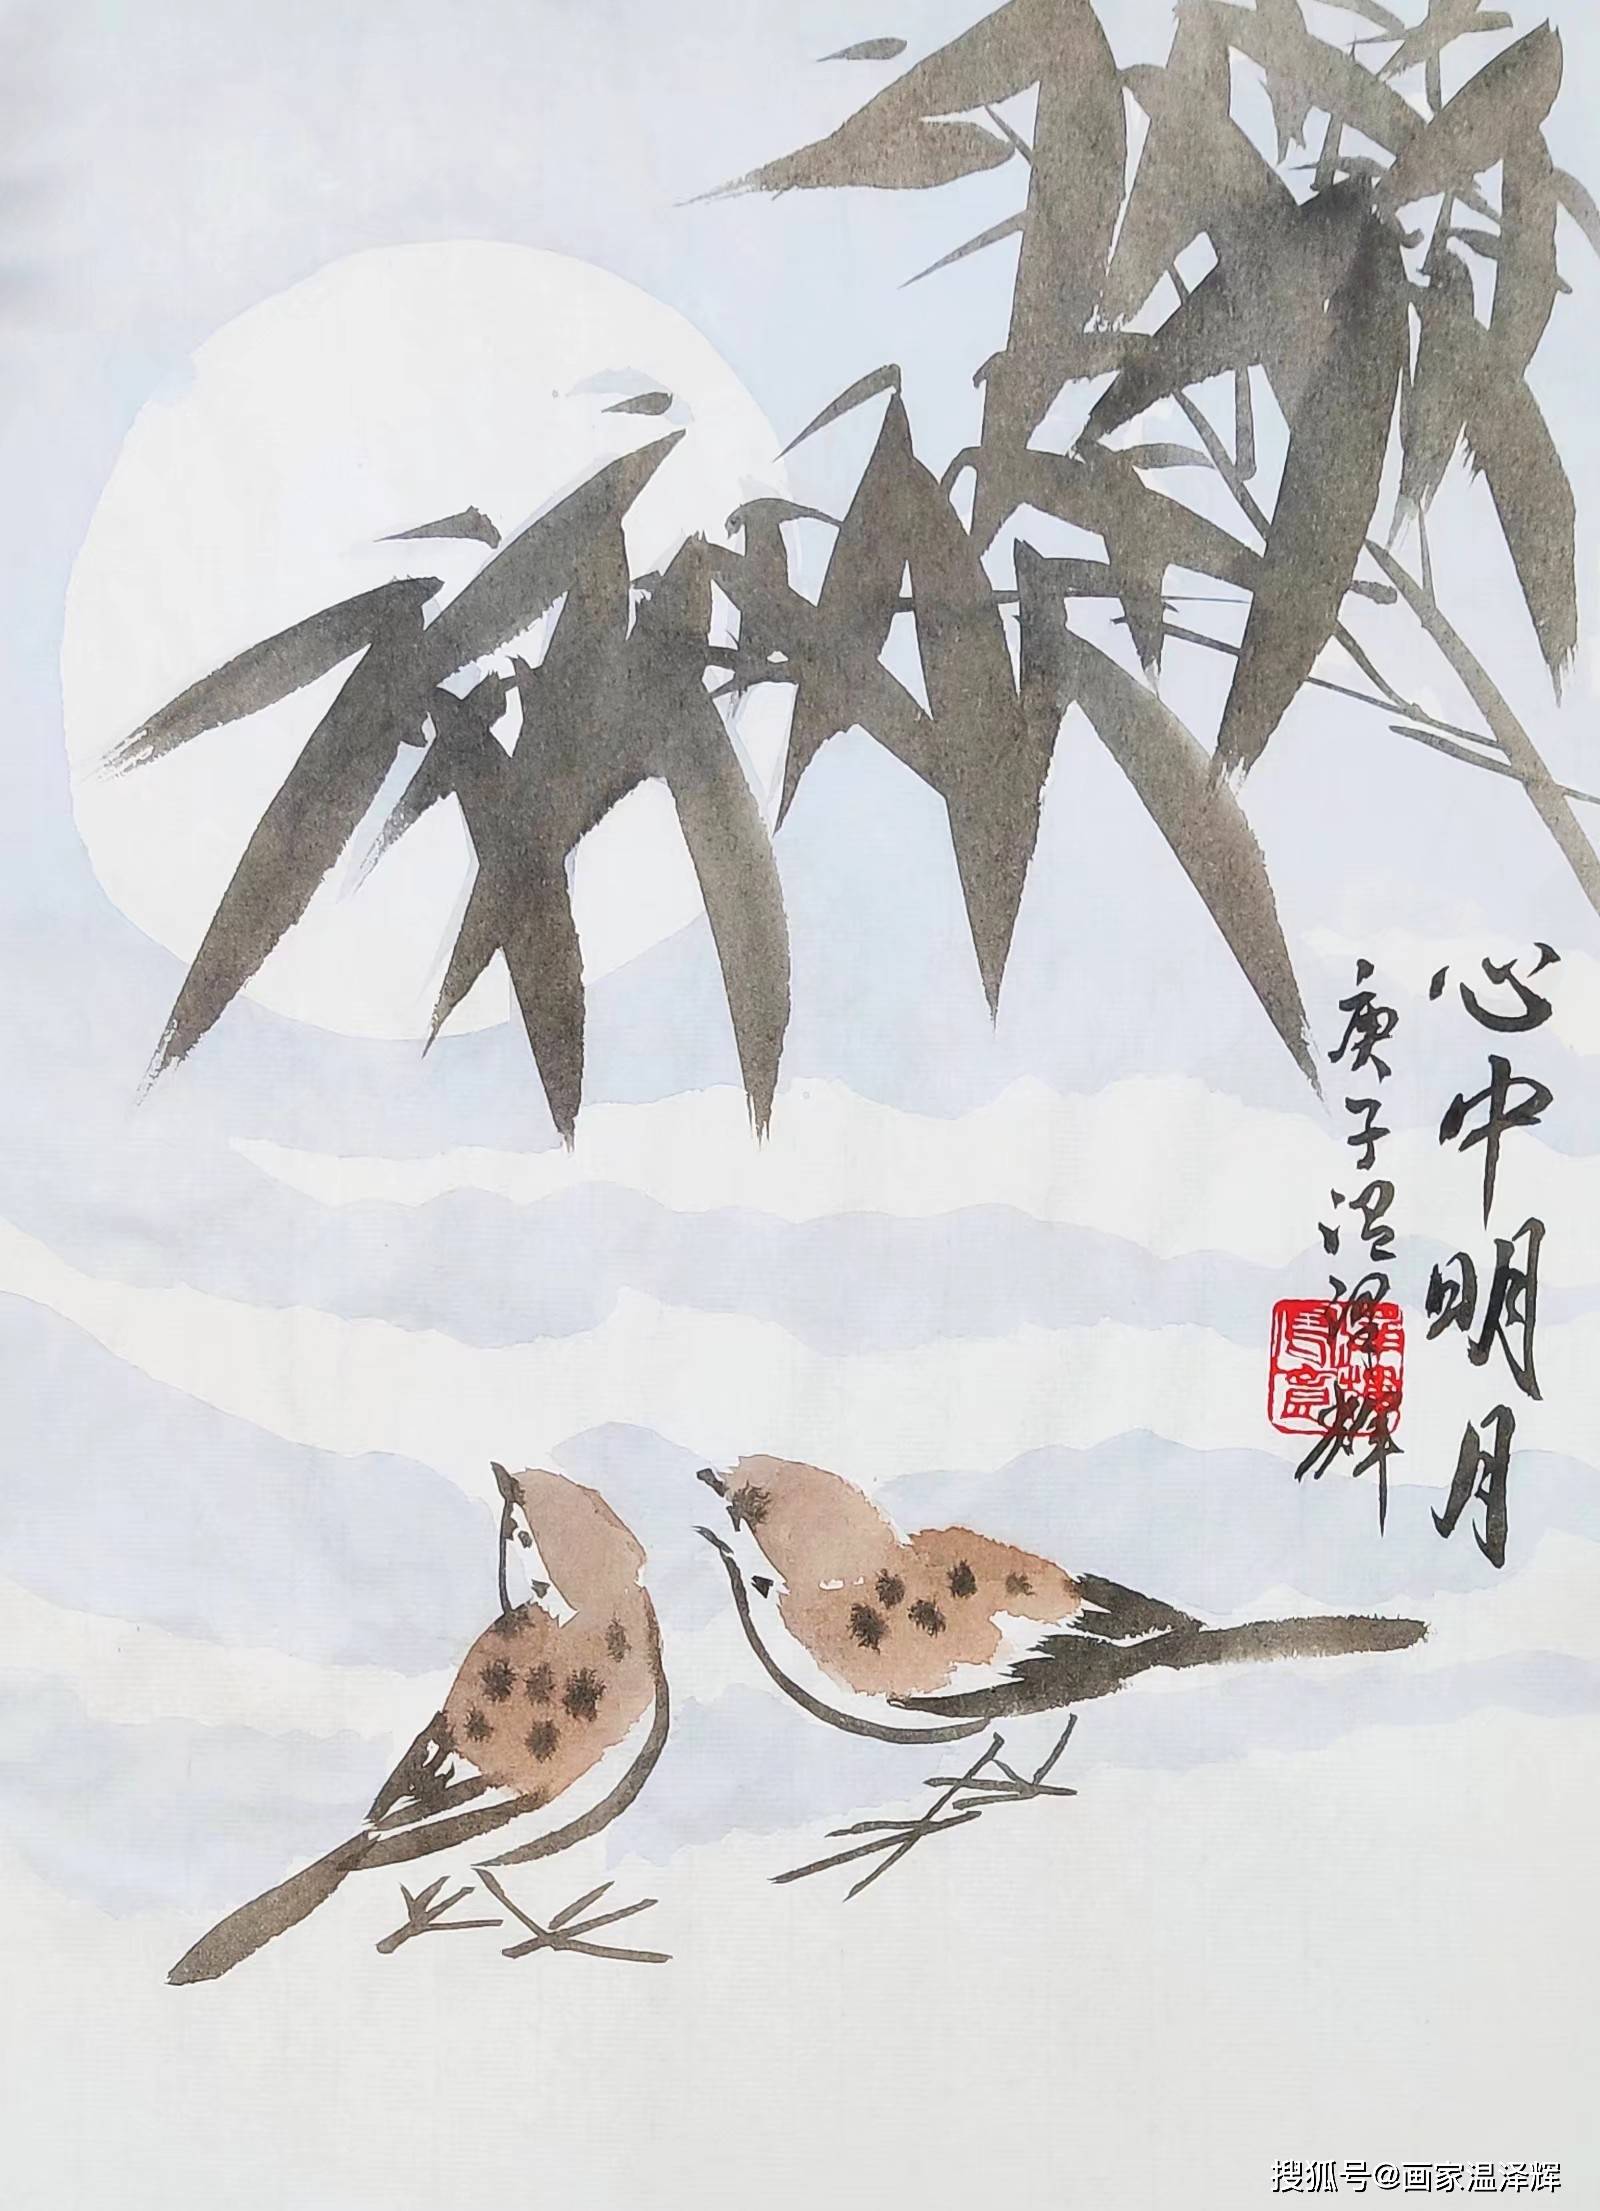 心中明月
庚子温泽辉
搜狐号@画家温泽辉